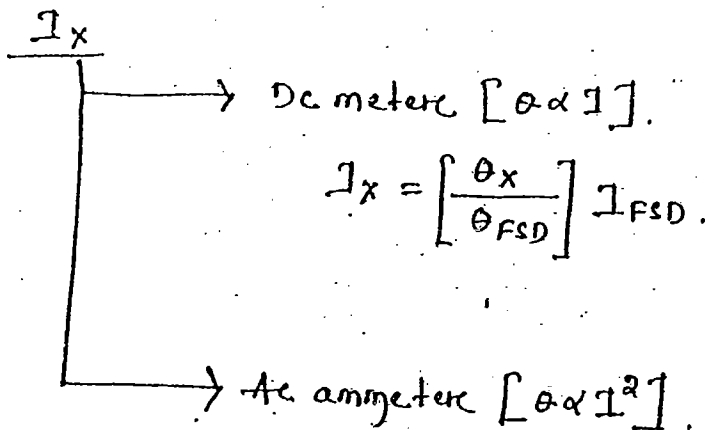 I_X
→ Dc metere [θ ∝ I].
I_X = [θ_X / θ_FSD] I_FSD.
→ Ac ammetere [θ ∝ I²].